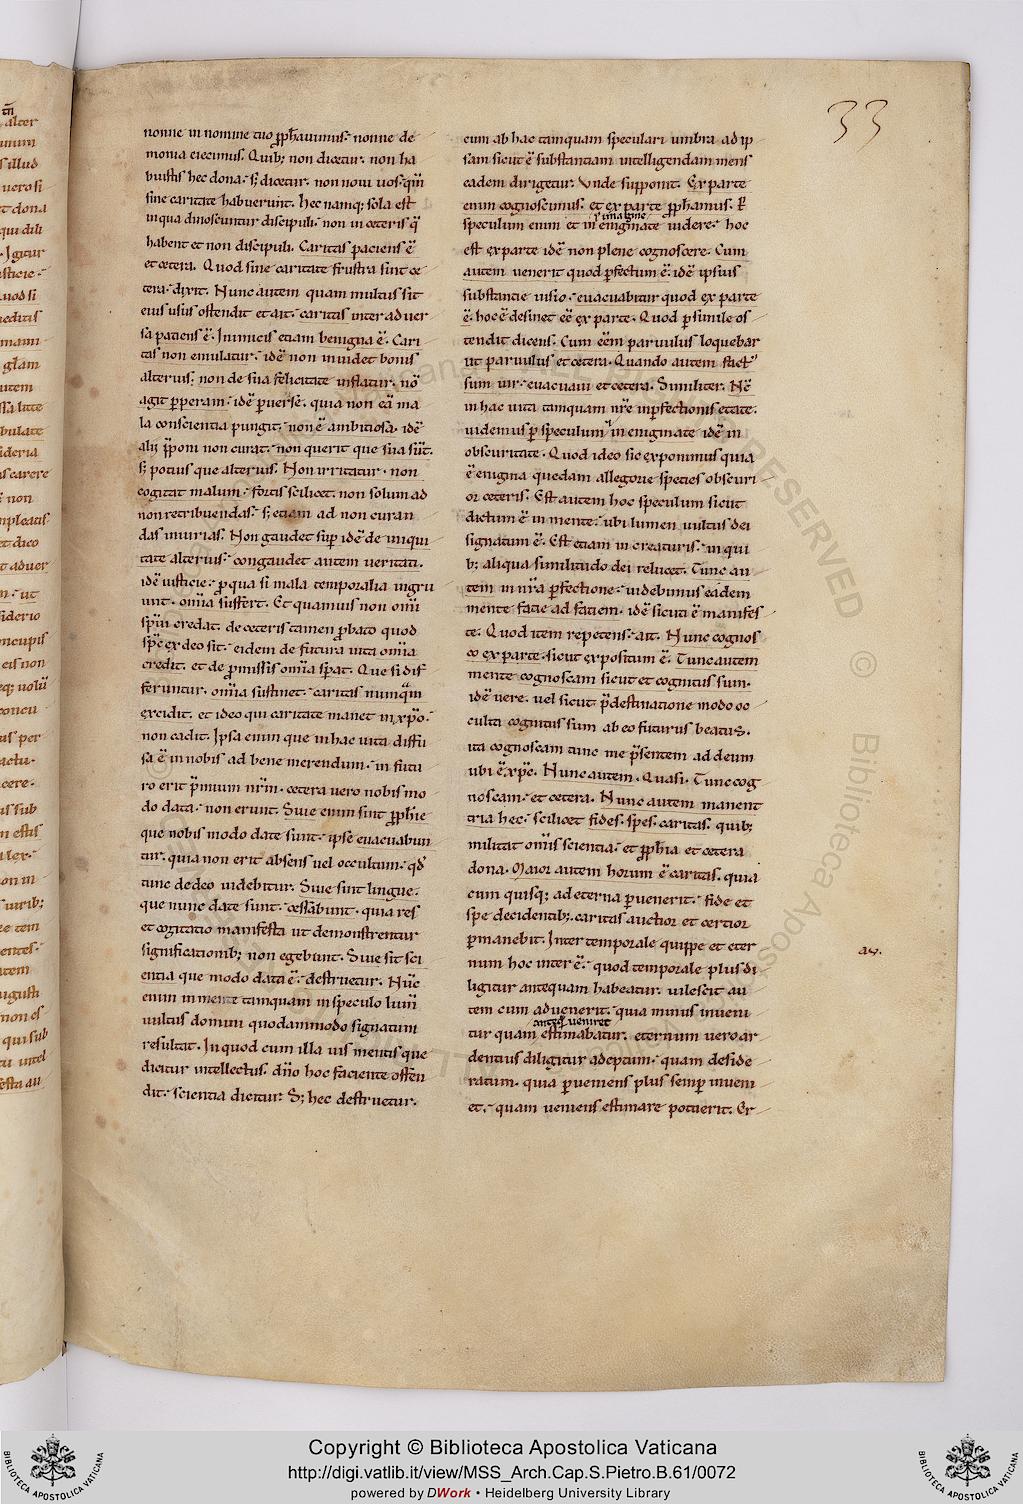 33
nonne in nomine tuo ꝓph̅auimus. nonne de
monia eiecimus. Quib; non dicetur. non ha
buistis hec dona. s; dicetur. non noui uos. qm̅
sine caritate habuerunt. Hec namq; sola est
in qua dinoscuntur discipuli. non in ceteris q̅
habent et non discipuli. Caritas paciens e̅
et cetera. Quod sine caritate frustra sint ce
tera. dixit. Nunc autem quam multus sit
eius usus ostendit et ait. caritas inter aduer
sa patiens e̅. Inimicis etiam benigna e̅. Cari
tas non emulatur. ide̅ non inuidet bonis
alterius; non de sua felicitate inflatur. no̅
agit p̲peram. ide̅ p̲uerse̅. quia non ea̅ ma
la conscientia pungit. non e̅ ambitiosa. ide̅
alij p̅poni non curat. non querit que sua su̅t.
s; potius que alterius. Non irritatur. non
cogitat malum. fortis scilicet. non solum ad
non retribuendas. s; etiam ad non curan
das iniurias. Non gaudet sup̲ ide̅ de iniqui
tate alterius. congaudet autem ueritati.
ide̅ iusticie. ꝓ qua si mala temporalia ingru
unt. om̅ia suffert. Et quamuis non om̅i
sp̅ui credat. de ceteris tamen ꝓbato quod
sp̅c ex deo sit. eidem de futura uita om̅ia
credit. et de ꝓmissis om̅ia sp̲at. Que si dif
feruntur. om̅ia sustinet. caritas numqua̅
excidit. et ideo qui caritate manet in xp̅o.
non cadit. Ipsa enim que in hac uita diffu
sa e̅ in nobis ad bene merendum. in futu
ro erit p̅mium nr̅m. cetera uero nobis mo
do data. non erunt. Siue enim sint ꝓph̅ie
que nobis modo date sunt. ipse euacuabun
tur. quia non erit absens uel occultum. qd̅
tunc de deo uidebitur. Siue sint lingue.
que nunc date sunt. cessabunt. quia res
et cogitatio manifesta ut demonstrentur
significationib; non egebunt. Siue sit sci
entia que modo data e̅. destruetur. Nu̅c
enim in mente tamquam in speculo lum̅
uultus domini quodammodo signatum
resultat. In quod cum illa uis mentis que
dicitur intellectus. dn̅o hoc faciente offen
dit. scientia dicitur. S; hec destruetur.
cum ab hac tamquam speculari umbra ad ip
sam sicut e̅ substantiam intelligendam mens
eadem dirigetur. Unde supponit. Ex parte
enim cognoscimus. et ex parte ꝓph̅amus.
imagine
speculum enim et in enigmate uidere. hoc
est ex parte ide̅ non plene cognoscere. Cum
autem uenerit quod p̲fectum e̅. ide̅ ipsius
substantie uisio. euacuabitur quod ex parte
e̅. hoc e̅ desinet ee̅ ex parte. Quod p̲ simile os
tendit dicens. Cum ee̅m paruulus loquebar
ut paruulus et cetera. Quando autem fact᷒
sum uir. euacuaui et cetera. Similiter. Nc̅
in hac uita tamquam nr̅e inp̲fectionis etate.
uidemus p̲ speculum in enigmate ide̅ in
obscuritate. Quod ideo sic exponimus quia
e̅ enigma quedam allegorie species obscuri
or ceteris. Est autem hoc speculum sicut
dictum e̅ in mente. ubi lumen uultus dei
signatum e̅. Est etiam in creaturis. in qui
b; aliqua similitudo dei relucet. Tunc au
tem in nr̅a p̲fectione. uidebimus eadem
mente facie ad faciem. ide̅ sicuti e̅ manifes
te. Quod item repetens. ait. Nunc cognos
co ex parte. sicut expositum e̅. Tunc autem
mente cognoscam sicut et cognitus sum.
ide̅ uere. uel sicut p̅destinatione modo oc
culta cognitus sum ab eo futurus beatus.
ita cognoscam tunc me p̅sentem ad deum
ubi e̅ xp̅c. Nunc autem. Quasi. Tunc cog
noscam. et cetera. Nunc autem manent
tria hec. scilicet fides. spes. caritas. quib;
militat om̅is scientia. et ꝓph̅ia et cetera
dona. Maior autem horum e̅ caritas. quia
cum quisq; ad eterna p̲uenerit. fide et
spe decidentib;. caritas auctior et certior
p̲manebit. Inter temporale quippe et eter
num hoc inter e̅. quod temporale plus di
ligitur antequam habeatur. uilescit au
tem cum aduenerit. quia minus inueni
anteq̅ ueniret
tur quam estimabatur. eternum uero ar
dentius diligitur adeptum. quam deside
ratum. quia p̲ueniens plus semp̲ inueni
et. quam ueniens estimare potuerit. Er
Copyright © Biblioteca Apostolica Vaticana
http://digi.vatlib.it/view/MSS_Arch.Cap.S.Pietro.B.61/0072
powered by DWork • Heidelberg University Library
BIBLIOTECA APOSTOLICA VATICANA
BIBLIOTECA APOSTOLICA VATICANA